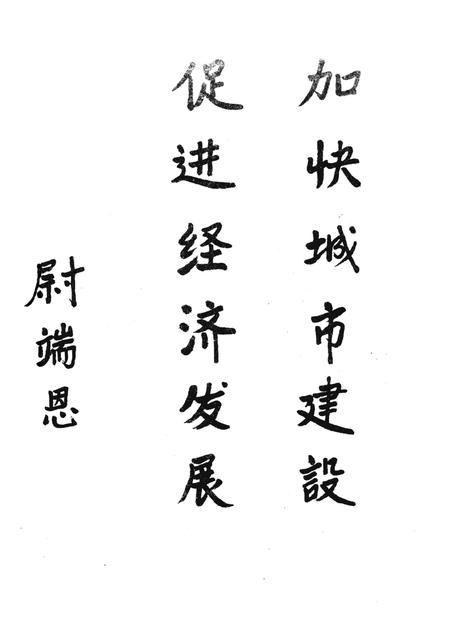 加快城市建設
促进经济发展
尉端恩